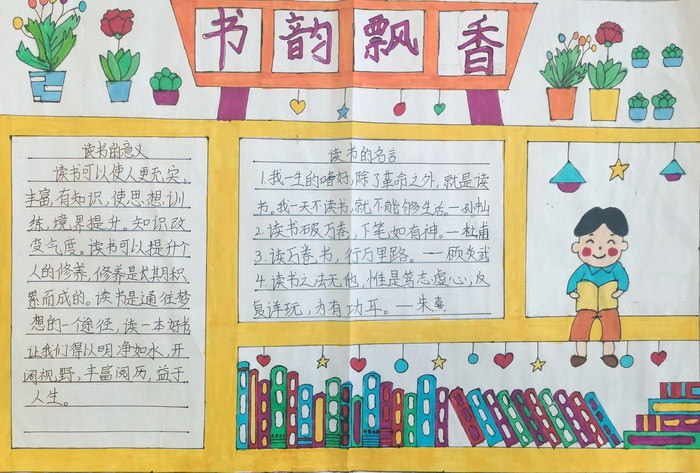 书韵飘香
读书的意义
读书可以使人更充实,
丰富,有知识,使思想训
练,境界提升。知识改
变气度。读书可以提升个
人的修养,修养是长期积
累而成的。读书是通往梦
想的一个途径,读一本好书
让我们得以明净如水,开
阔视野,丰富阅历,益于
人生。
读书的名言
1.我一生的嗜好,除了革命之外,就是读
书。我一天不读书,就不能够生活。—孙中山
2.读书破万卷,下笔如有神。—杜甫
3.读万卷书,行万里路。—顾炎武
4.读书之法无他,惟是笃志虚心,反
复详玩,为有功耳。—朱熹